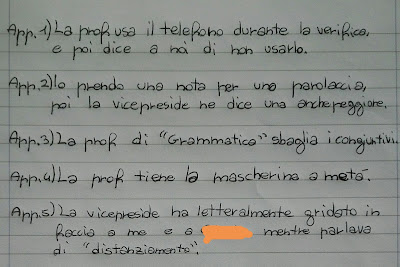 App.1) La prof usa il telefono durante la verifica,
e poi dice a noi di non usarlo.
App.2) Io prendo una nota per una parolaccia,
poi la vicepreside ne dice una anche peggiore.
App.3) La prof di "Grammatica" sbaglia i congiuntivi.
App.4) La prof tiene la mascherina a metà.
App.5) La vicepreside ha letteralmente gridato in
faccia a me e a mentre parlava
di "distanziamento".